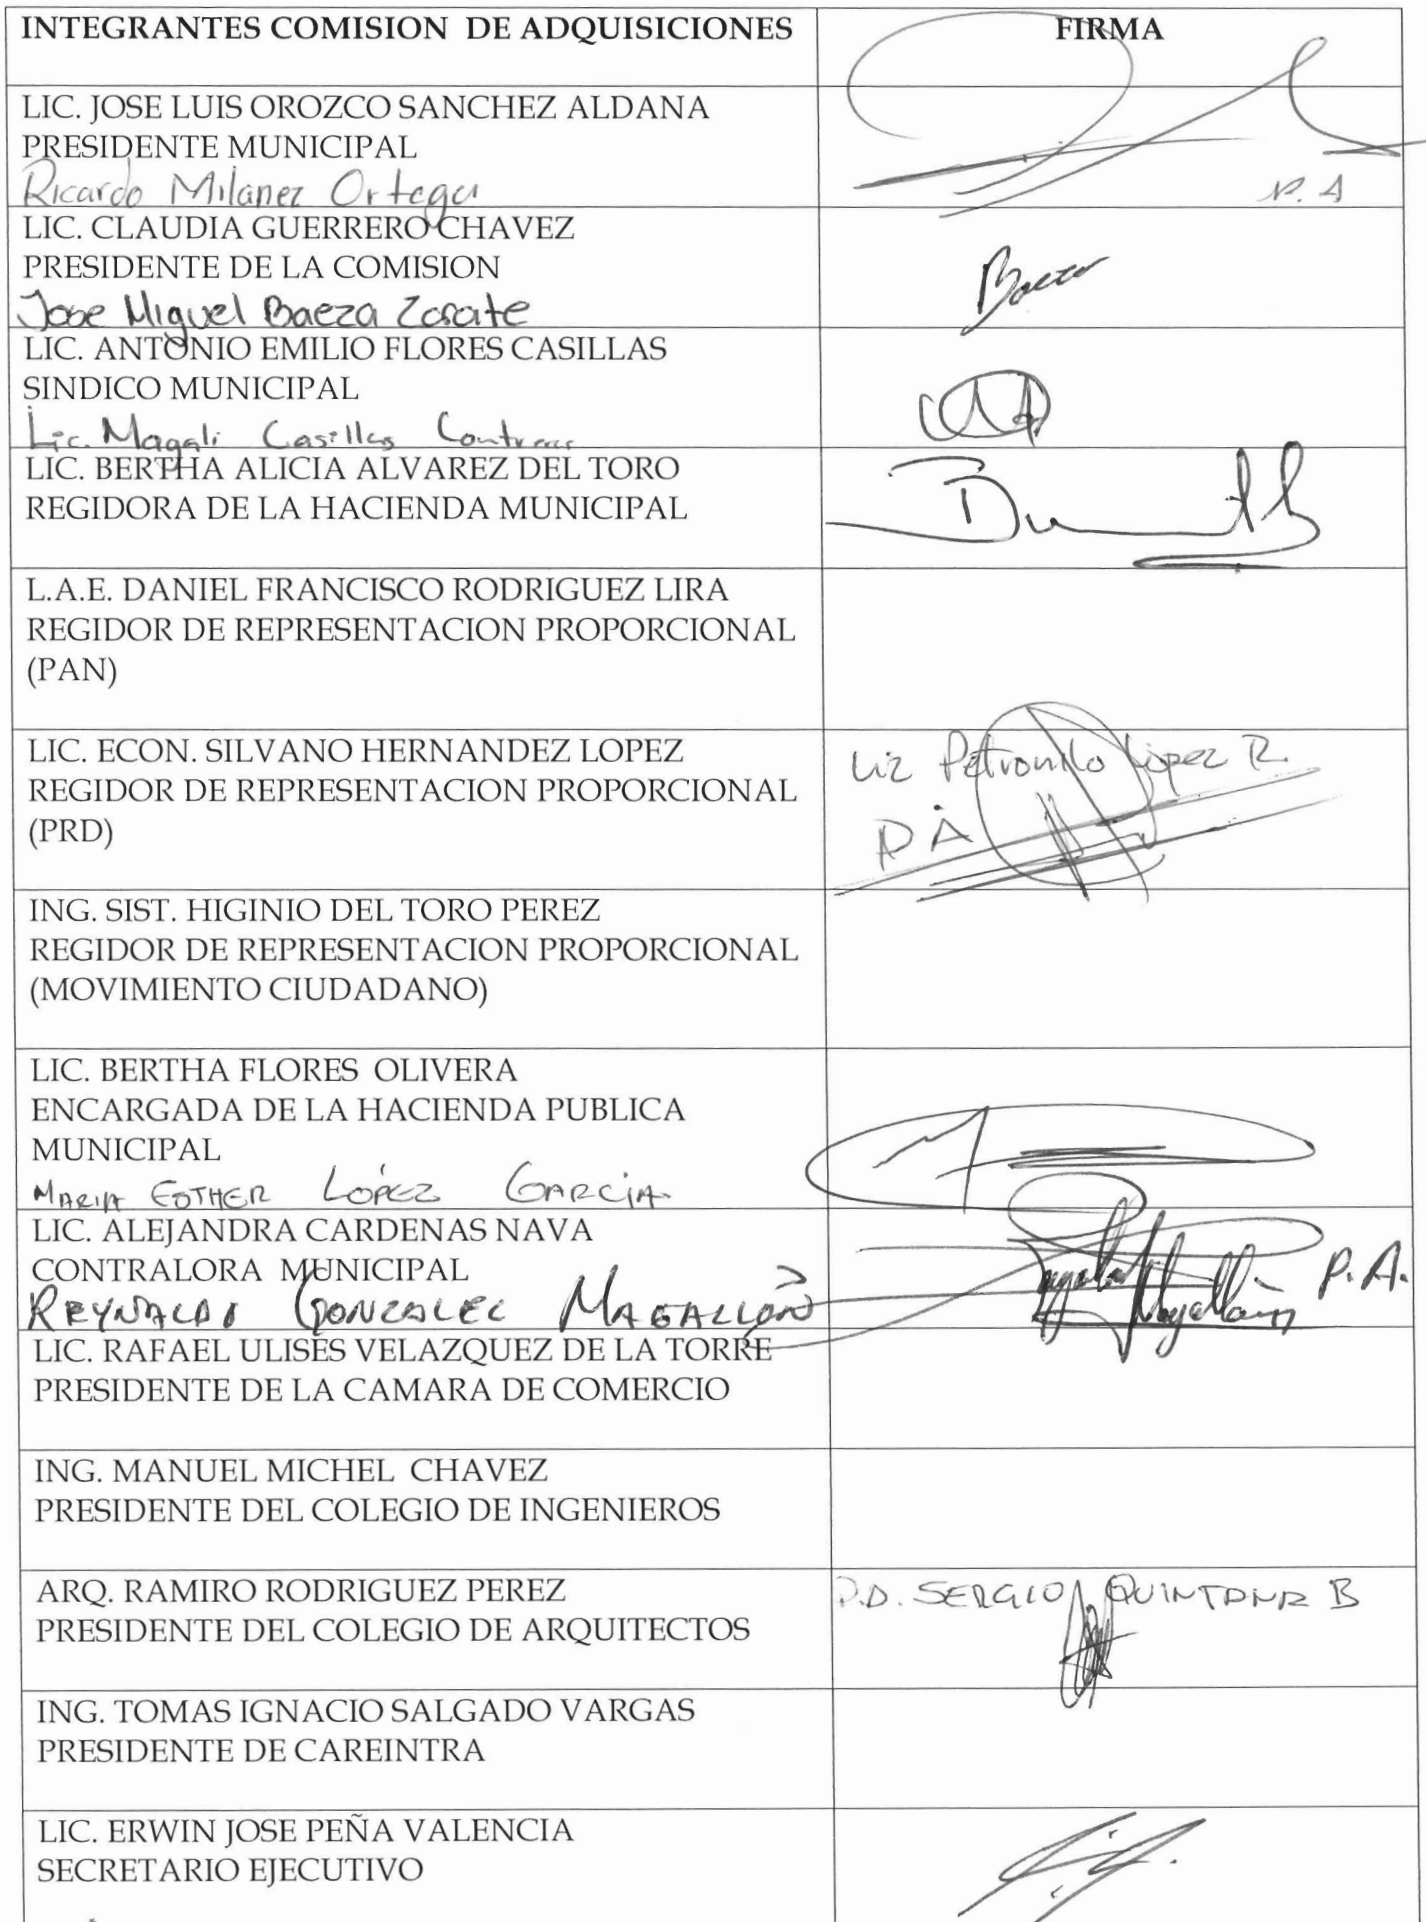 INTEGRANTES COMISION DE ADQUISICIONES
FIRMA
LIC. JOSE LUIS OROZCO SANCHEZ ALDANA
PRESIDENTE MUNICIPAL
Ricardo Milanez Ortega
P. A
LIC. CLAUDIA GUERRERO CHAVEZ
PRESIDENTE DE LA COMISION
Jose Miguel Baeza Zarate
Baeza
LIC. ANTONIO EMILIO FLORES CASILLAS
SINDICO MUNICIPAL
Lic. Magali Casillas Contreras
LIC. BERTHA ALICIA ALVAREZ DEL TORO
REGIDORA DE LA HACIENDA MUNICIPAL
L.A.E. DANIEL FRANCISCO RODRIGUEZ LIRA
REGIDOR DE REPRESENTACION PROPORCIONAL
(PAN)
LIC. ECON. SILVANO HERNANDEZ LOPEZ
REGIDOR DE REPRESENTACION PROPORCIONAL
(PRD)
Lic Petronilo López R.
P A
ING. SIST. HIGINIO DEL TORO PEREZ
REGIDOR DE REPRESENTACION PROPORCIONAL
(MOVIMIENTO CIUDADANO)
LIC. BERTHA FLORES OLIVERA
ENCARGADA DE LA HACIENDA PUBLICA
MUNICIPAL
MARIA ESTHER LÓPEZ GARCIA.
LIC. ALEJANDRA CARDENAS NAVA
CONTRALORA MUNICIPAL
REYNALDO GONZALEZ MAGALLÓN
Magallón P.A.
LIC. RAFAEL ULISES VELAZQUEZ DE LA TORRE
PRESIDENTE DE LA CAMARA DE COMERCIO
ING. MANUEL MICHEL CHAVEZ
PRESIDENTE DEL COLEGIO DE INGENIEROS
ARQ. RAMIRO RODRIGUEZ PEREZ
PRESIDENTE DEL COLEGIO DE ARQUITECTOS
P.A. SERGIO QUINTANA B
ING. TOMAS IGNACIO SALGADO VARGAS
PRESIDENTE DE CAREINTRA
LIC. ERWIN JOSE PEÑA VALENCIA
SECRETARIO EJECUTIVO